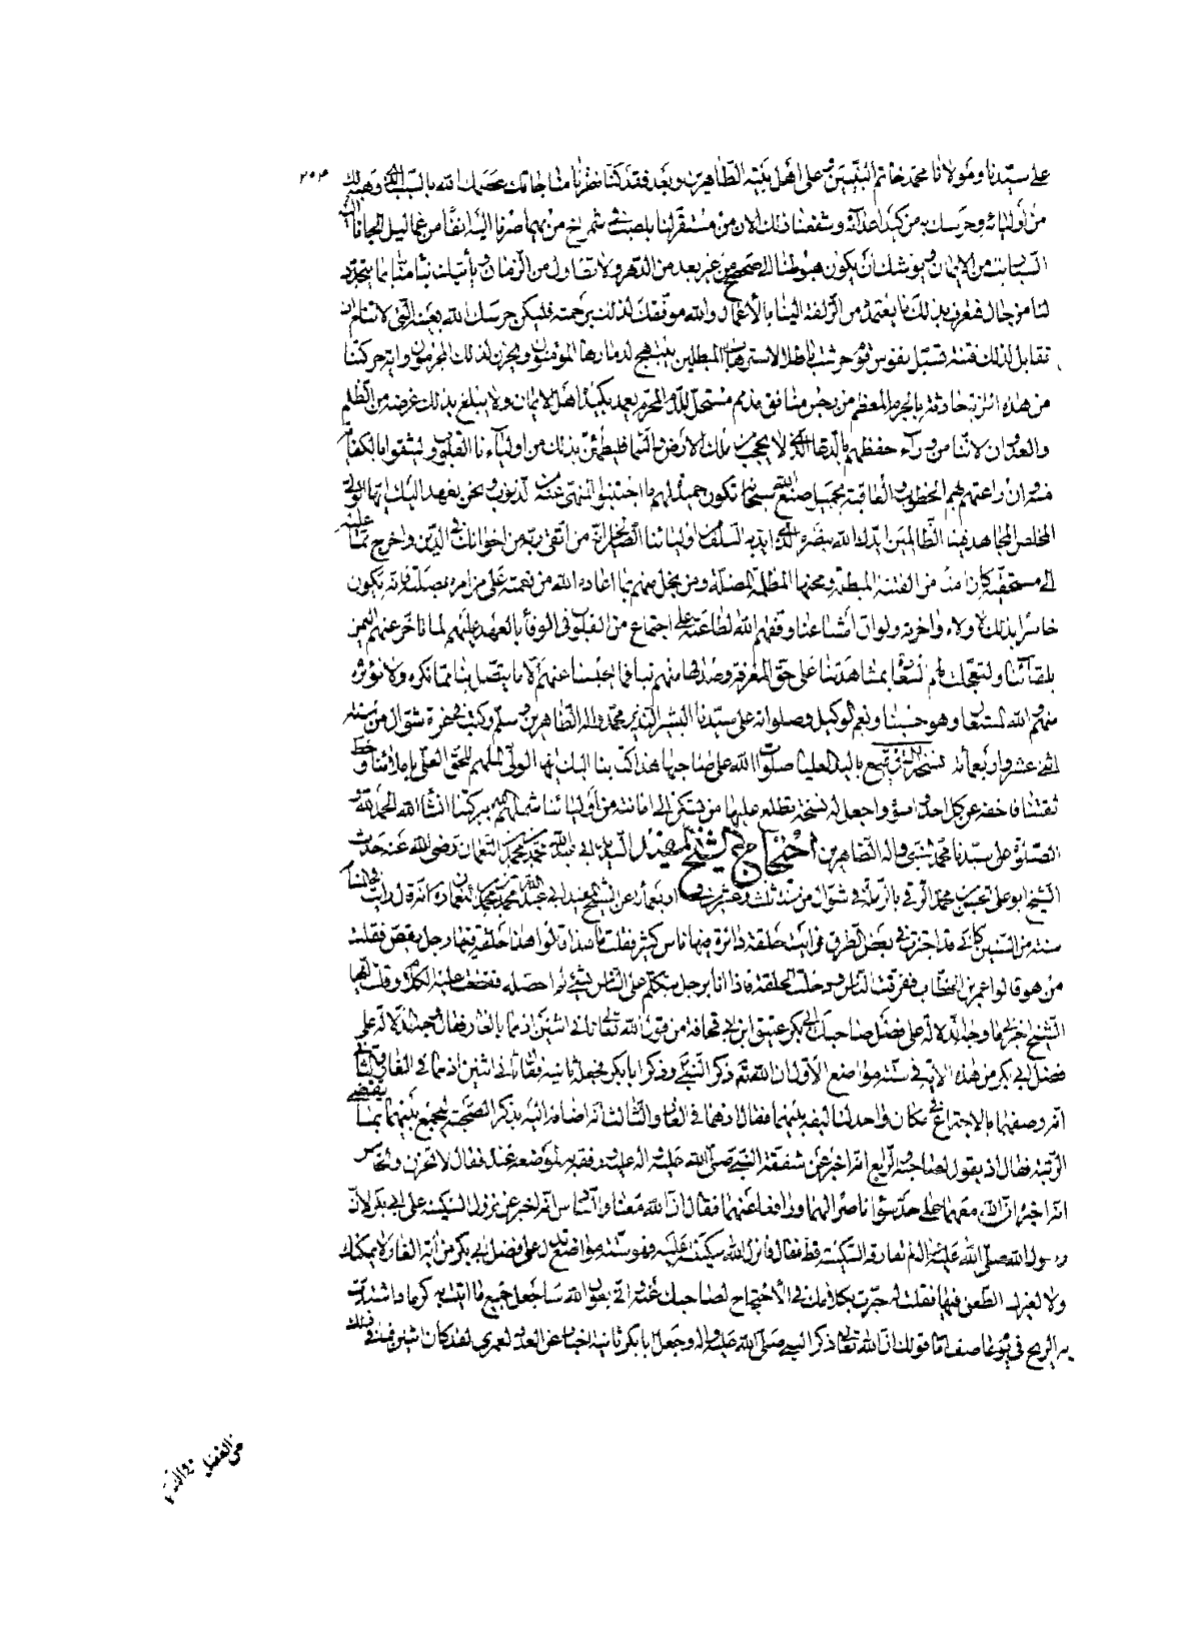 على سيدنا ومولانا محمد خاتم النبيين وعلى اهل بيته الطاهرين وبعد فقد كنا نظرنا مناجاتك عصمك الله بالسبب الذى وهبه لك
من اوليائه وحرسك به من كيد اعدائه وشفعنا ذلك الان من مستقر لنا بنصب فى شمراخ من بهماء صرنا اليه انفا من غماليل الجانا اليه
السباريت من الايمان ويوشك ان يكون هبوطنا الى صحصح من غير بعد من الدهر ولا تطاول من الزمان وياتيك نبأ منا بما يتجدد
لنا من حال فتعرف بذلك ما نعتمده من الزلفة الينا بالاعمال والله موفقك لذلك برحمته فلتكن حرسك الله بعينه التى لا تنام ان
تقابل لذلك فتنة تسبل نفوس قوم حرثت باطلا لاسترهاب المبطلين يبتهج لدمارها المؤمنون ويحزن لذلك المجرمون واية حركتنا
من هذه اللوثة حادثة بالحرم المعظم من رجس منافق مذمم مستحل للدم المحرم يعمد بكيده اهل الايمان ولا يبلغ بذلك غرضه من الظلم
والعدوان لاننا من وراء حفظهم بالدعاء الذى لا يحجب عن ملك الارض والسماء فليطمئن بذلك من اوليائنا القلوب وليثقوا بالكفاية
منه وان راعتهم بهم الخطوب والعاقبة بجميل صنع الله سبحانه تكون حميدة لهم ما اجتنبوا المنهى عنه من الذنوب ونحن نعهد اليك ايها الولى
المخلص المجاهد فينا الظالمين ايدك الله بنصره الذى ايد به السلف من اوليائنا الصالحين انه من اتقى ربه من اخوانك فى الدين واخرج مما عليه
الى مستحقيه كان امنا من الفتنة المبطلة ومحنها المظلمة المضلة ومن بخل منهم بما اعاده الله من نعمته على من امره بصلته فانه يكون
خاسرا بذلك لاولاه واخرته ولو ان اشياعنا وفقهم الله لطاعته على اجتماع من القلوب فى الوفاء بالعهد عليهم لما تاخر عنهم اليمن
بلقائنا ولتعجلت لهم السعادة بمشاهدتنا على حق المعرفة وصدقها منهم بنا فما يحبسنا عنهم الا ما يتصل بنا مما نكره ولا نؤثره
منهم والله المستعان وهو حسبنا ونعم الوكيل وصلواته على سيدنا البشير النذير محمد واله الطاهرين وسلم وكتب فى غرة شوال من سنة
اثنى عشر واربعمائة نسخة التوقيع باليد العليا صلوات الله على صاحبها هذا كتابنا اليك ايها الولى الملهم للحق العلى باملائنا وخط
ثقتنا فاخفه عن كل احد واطوه واجعل له نسخة تطلع عليها من تسكن الى امانته من اوليائنا شملهم الله ببركتنا انشاء الله الحمد لله و
الصلوة على سيدنا محمد النبى واله الطاهرين احتجاج الشيخ المفيد السديد ابى عبد الله محمد بن محمد بن النعمان رضى الله عنه حدث
الشيخ ابو على الحسن بن محمد الرقى بالرملة فى شوال من سنة ثلث وعشرين واربعمائة عن الشيخ المفيد ابى عبد الله محمد بن محمد بن النعمان انه قال رايت فى المنام
سنة من السنين كانى قد اجتزت فى بعض الطرق فرايت حلقة دائرة فيها ناس كثير فقلت ما هذا قالوا هذا حلقة فيها رجل يقص فقلت
من هو قالوا عمر بن الخطاب ففرقت الناس ودخلت الحلقة فاذا انا برجل يتكلم على الناس بشئ لم احصله فقطعت عليه الكلام وقلت ايها
الشيخ اخبرنى ما وجه الدلالة على فضل صاحبك ابى بكر عتيق ابن ابى قحافة من قول الله تعالى ثانى اثنين اذ هما فى الغار فقال وجه الدلالة على
فضل ابى بكر من هذه الاية فى ستة مواضع الاول ان الله تعالى ذكر النبى وذكر ابا بكر فجعله ثانيه فقال ثانى اثنين اذ هما فى الغار والثانى
انه وصفهما بالاجتماع فى مكان واحد لتاليفه بينهما فقال اذ هما فى الغار والثالث انه اضافه اليه بذكر الصحبة ليجمع بينهما بما تقتضى
الرتبة فقال اذ يقول لصاحبه الرابع انه اخبر عن شفقة النبى صلى الله عليه واله عليه ورفقه به لموضعه عنده فقال لا تحزن والخامس
انه اخبر ان الله معهما على حد سواء ناصرا لهما ودافعا عنهما فقال ان الله معنا والسادس انه اخبر عن نزول السكينة على ابى بكر لان
رسول الله صلى الله عليه واله لم تفارقه السكينة قط فقال فانزل الله سكينته عليه فهذه ستة مواضع تدل على فضل ابى بكر من اية الغار لا يمكنك
ولا لغيرك الطعن فيها فقلت له حبرت بكلامك فى الاحتجاج لصاحبك عنه وانى بعون الله ساجعل جميع ما اتيت به كرماد اشتدت
به الريح فى يوم عاصف اما قولك ان الله تعالى ذكر النبى صلى الله عليه واله وجعل ابا بكر ثانيه فهو اخبار عن العدد لعمرى لقد كان اثنين فما فى ذلك
من الفضل